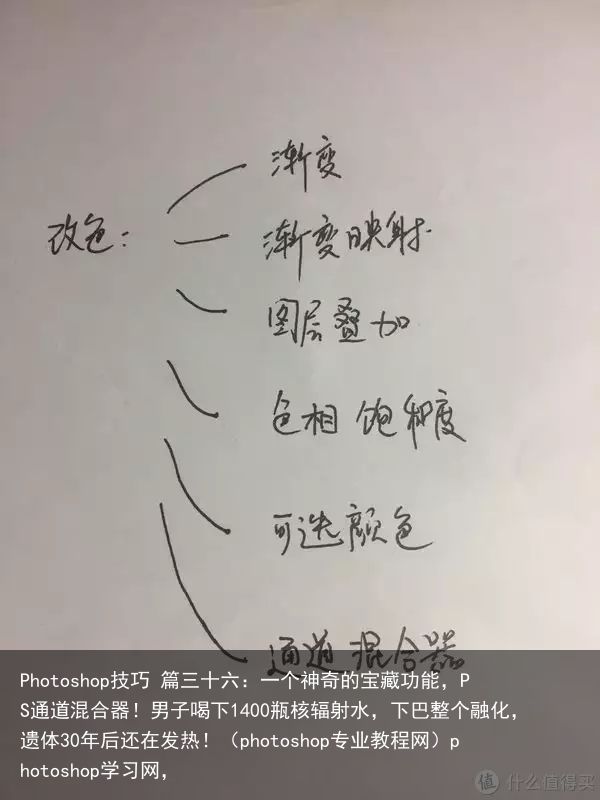 渐变
改色：
渐变映射
图层叠加
色相 饱和度
可选颜色
通道 混合器
Photoshop技巧 篇三十六：一个神奇的宝藏功能，P
S通道混合器！男子喝下1400瓶核辐射水，下巴整个融化，
遗体30年后还在发热！（photoshop专业教程网）p
hotoshop学习网，
值 什么值得买